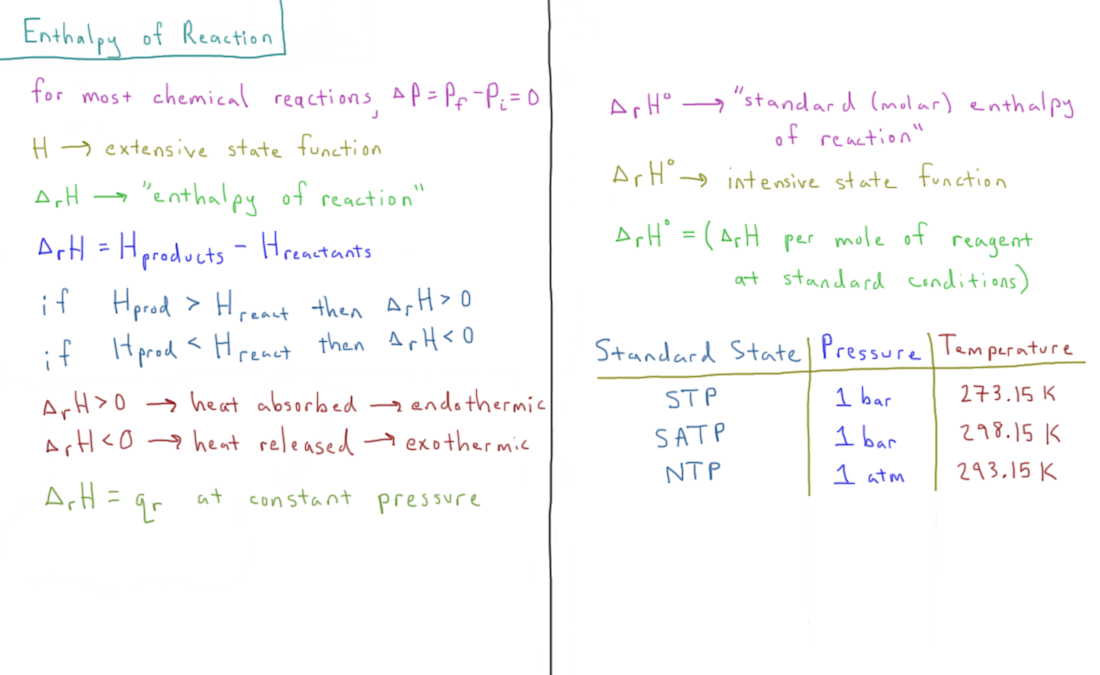 Enthalpy of Reaction
for most chemical reactions, ΔP = Pf - Pi = 0
H → extensive state function
ΔrH → "enthalpy of reaction"
ΔrH = Hproducts - Hreactants
if Hprod > Hreact then ΔrH > 0
if Hprod < Hreact then ΔrH < 0
ΔrH > 0 → heat absorbed → endothermic
ΔrH < 0 → heat released → exothermic
ΔrH = qr at constant pressure
ΔrH° → "standard (molar) enthalpy
of reaction"
ΔrH° → intensive state function
ΔrH° = (ΔrH per mole of reagent
at standard conditions)
Standard State | Pressure | Temperature
STP 1 bar 273.15 K
SATP 1 bar 298.15 K
NTP 1 atm 293.15 K